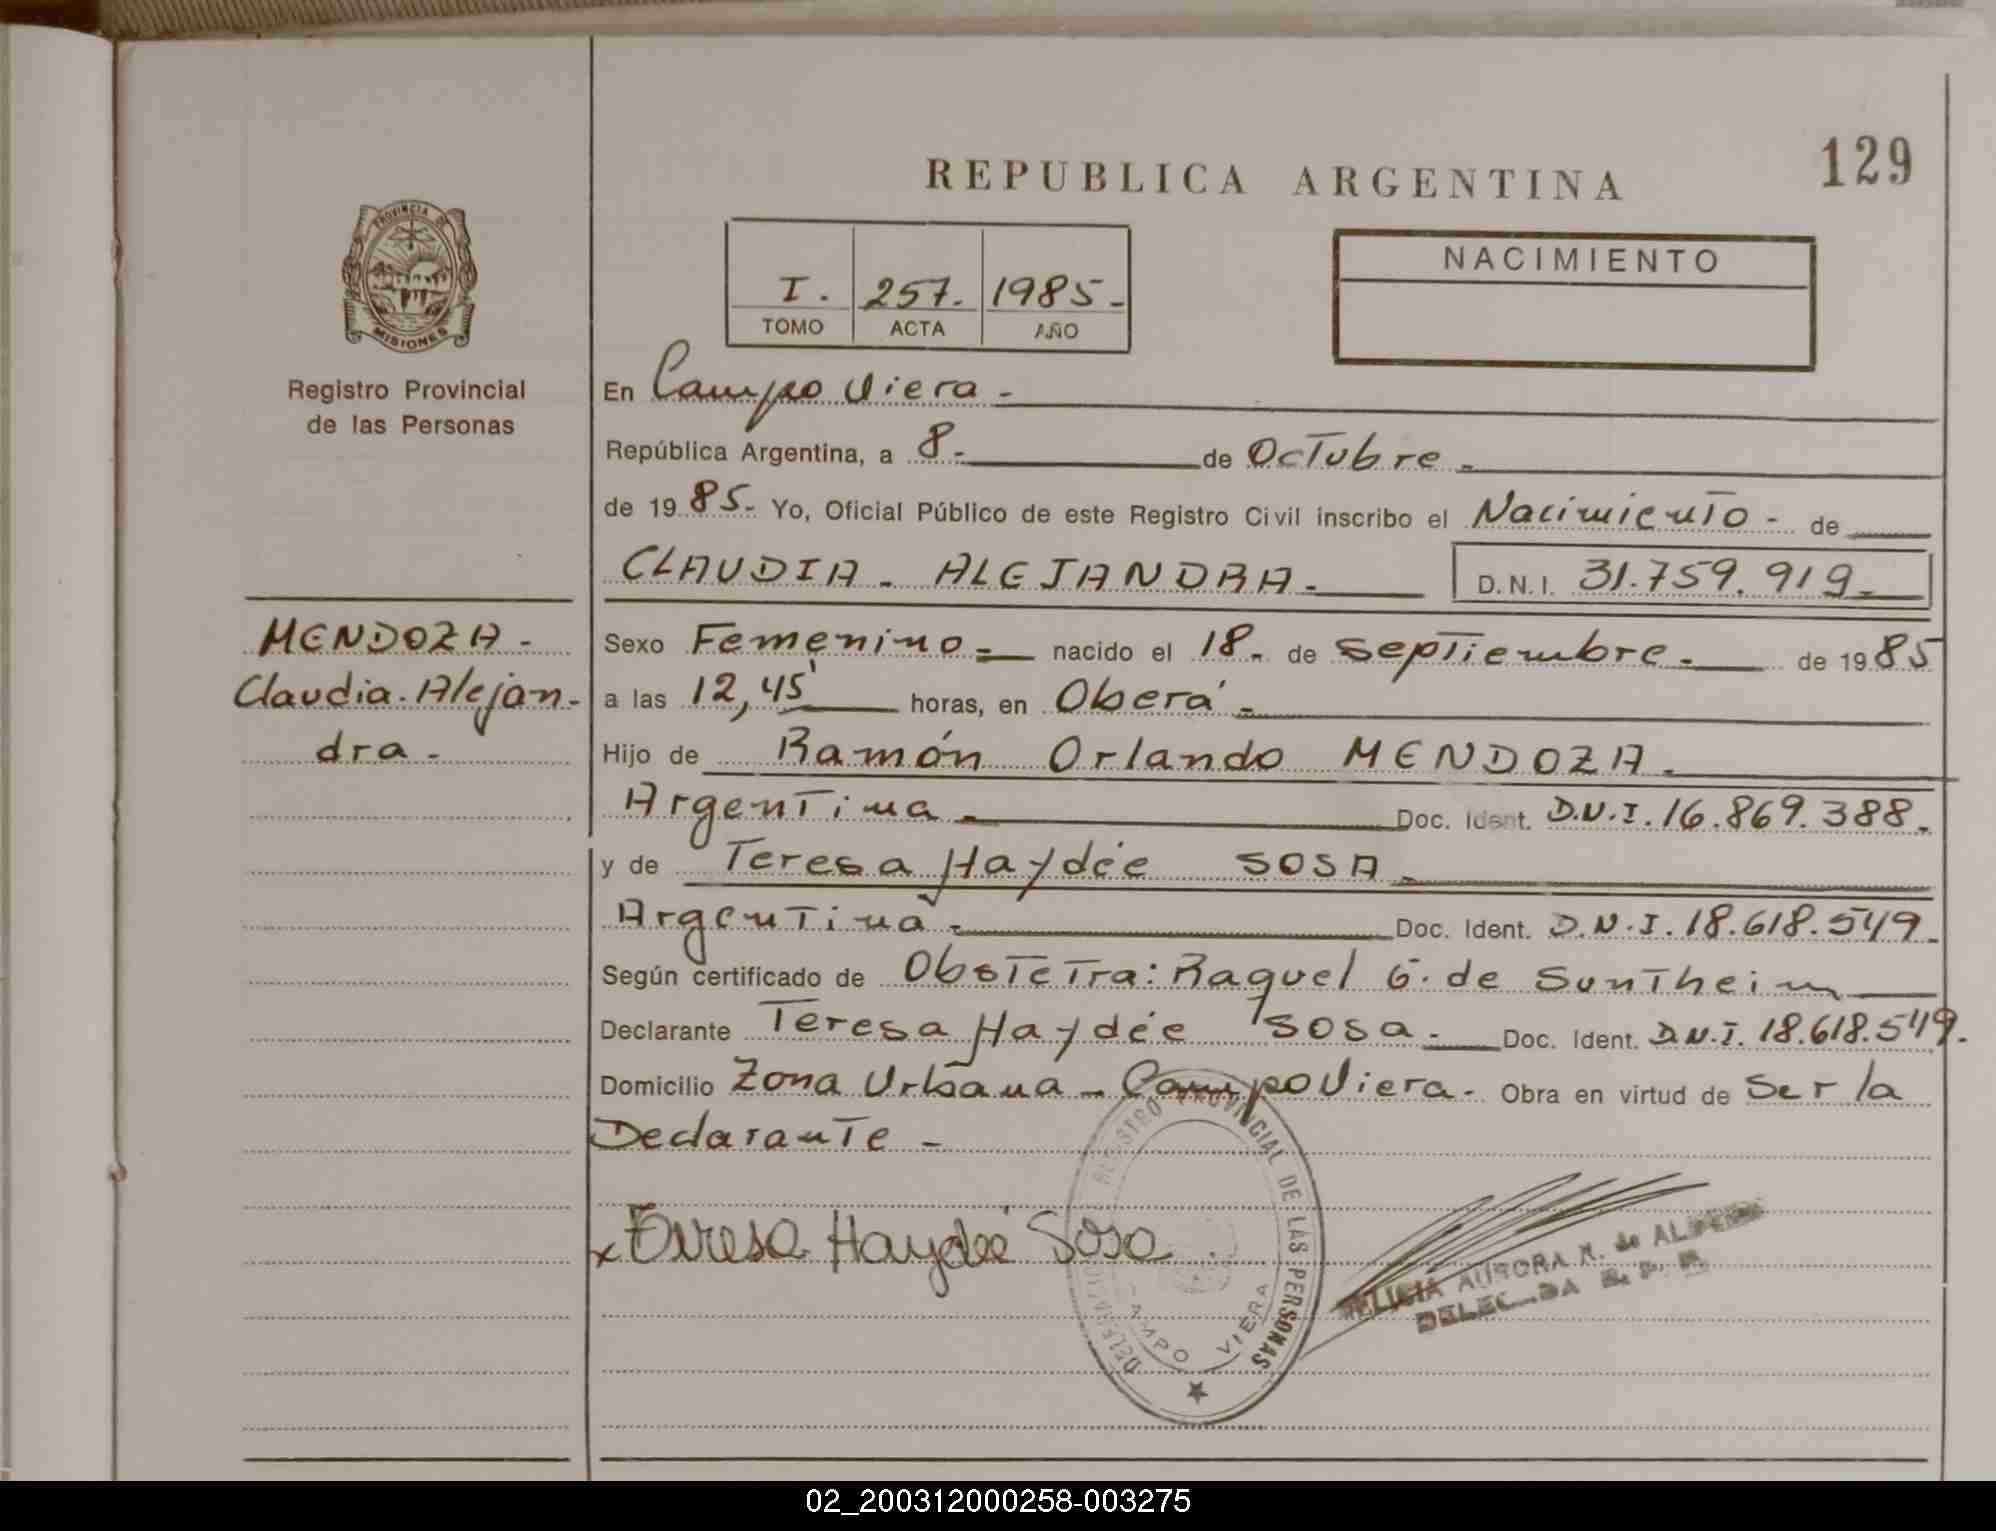 REPUBLICA ARGENTINA
129
PROVINCIA DE
MISIONES
Registro Provincial
de las Personas
I. 257. 1985.-
TOMO ACTA AÑO
NACIMIENTO
En Campo Viera.-
República Argentina, a 8.- de Octubre.-
de 1985.- Yo, Oficial Público de este Registro Civil inscribo el Nacimiento.- de
CLAUDIA. ALEJANDRA.- D.N.I. 31.759.919.-
MENDOZA.-
Claudia. Alejan-
dra.-
Sexo Femenino.- nacido el 18.- de septiembre.- de 1985
a las 12,45' horas, en Oberá.-
Hijo de Ramón Orlando MENDOZA.-
Argentina.- Doc. Ident. D.N.I. 16.869.388.-
y de Teresa Haydée SOSA.-
Argentina.- Doc. Ident. D.N.I. 18.618.549.-
Según certificado de Obstetra: Raquel G. de Suntheim
Declarante Teresa Haydée Sosa.- Doc. Ident. D.N.I. 18.618.549.-
Domicilio Zona Urbana - Campo Viera.- Obra en virtud de Ser la
Declarante -
x Teresa Haydeé Sosa
REGISTRO PROVINCIAL DE LAS PERSONAS
CAMPO VIERA
FELICIA AURORA M. de
02_200312000258-003275